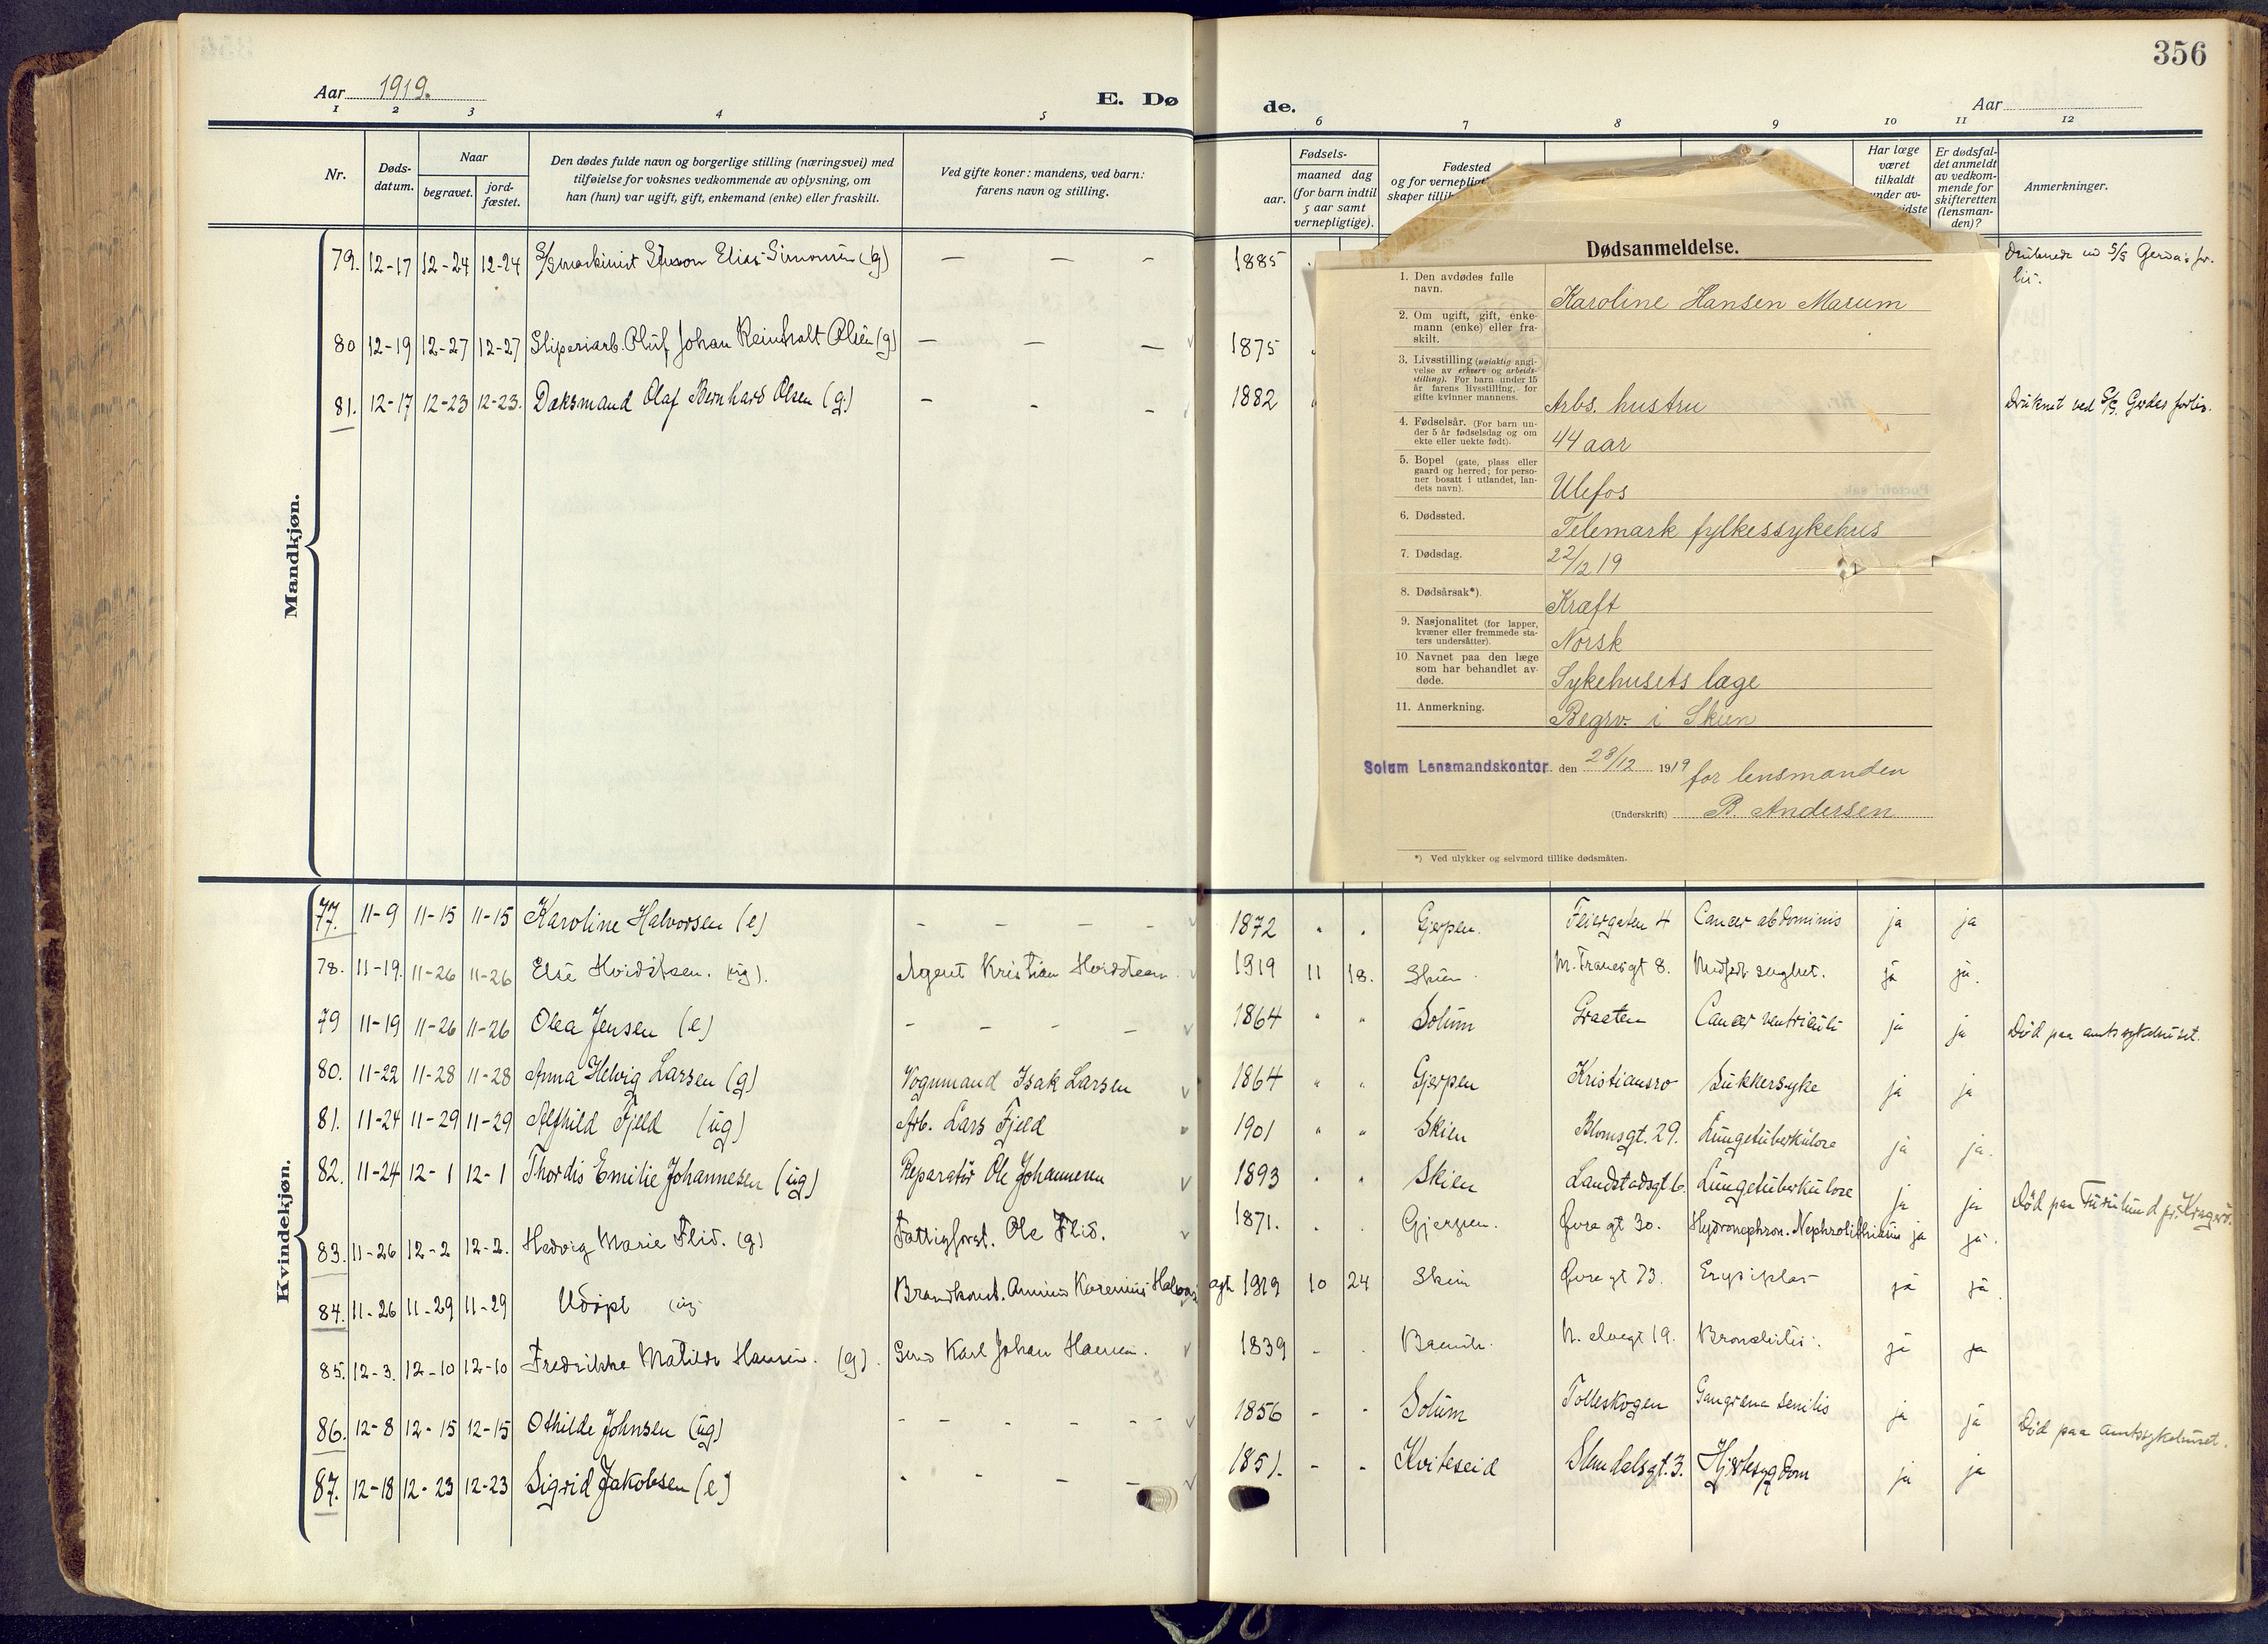 356
Aar 1919.
E. Dø de.
Aar
1 2 3 4 5 6 7 8 9 10 11 12
Nr.
Døds-
datum.
Naar
begravet.
jord-
fæstet.
Den dødes fulde navn og borgerlige stilling (næringsvei) med
tilføielse for voksnes vedkommende av oplysning, om
han (hun) var ugift, gift, enkemand (enke) eller fraskilt.
Ved gifte koner: mandens, ved barn:
farens navn og stilling.
Fødsels-
aar.
maaned dag
(for barn indtil
5 aar samt
vernepligtige).
Fødested
og for vernepligt
skaper tillik
Har læge
været
tilkaldt
under av-
idste
Er dødsfal-
det anmeldt
av vedkom-
mende for
skifteretten
(lensman-
den)?
Anmerkninger.
Mandkjøn.
79. 12-17 12-24 12-24 S/S maskinist Simon Elias Simonsen (g) — — - 1885 Druknede ved S/S Gerda's for-
lis.
80 12-19 12-27 12-27 Sliperiarb. Oluf Johan Reinholt Olsen (g) — — — 1875
81. 12-17 12-23 12-23. Dæksmand Olaf Bernhard Olsen (g.) - - - 1882 Druknet ved S/S. Gerdas forlis.
Dødsanmeldelse.
1. Den avdødes fulle
navn.
Karoline Hansen Marum
2. Om ugift, gift, enke-
mann (enke) eller fra-
skilt.
3. Livsstilling (nøiaktig angi-
velse av erhverv og arbeids-
stilling). For barn under 15
år farens livsstilling, for
gifte kvinner mannens.
Arbs. hustru
4. Fødselsår. (For barn un-
der 5 år fødselsdag og om
ekte eller uekte født).
44 aar
5. Bopel (gate, plass eller
gaard og herred; for perso-
ner bosatt i utlandet, lan-
dets navn).
Ulefos
6. Dødssted.
Telemark fylkessykehus
7. Dødsdag.
22/12 19
8. Dødsårsak*).
Kræft
9. Nasjonalitet (for lapper,
kvæner eller fremmede sta-
ters undersåtter).
Norsk
10. Navnet paa den læge
som har behandlet av-
døde.
Sykehusets læge
11. Anmerkning.
Begrv. i Skien
Solum Lensmandskontor den 23/12 1919 for lensmanden
(Underskrift) B. Andersen
*) Ved ulykker og selvmord tillike dødsmåten.
Kvindekjøn.
77. 11-9 11-15 11-15 Karoline Halvorsen (e) - - - - 1872 Gjerpen. Feiergaten 4 Cancer abdominis ja ja
78. 11-19. 11-26 11-26 Else Hvidsteen. (ug). Agent Kristian Hvidsteen. 1919 11 18. Skien. M. Tranesgt 8. Medfødt svaghet. ja ja.
79 11-19 11-26 11-26 Olea Jensen (e) - - - - 1864 Solum Graaten Cancer ventriculi ja ja Død paa amtssykehuset.
80. 11-22 11-28 11-28 Anna Helvig Larsen (g) Vognmand Isak Larsen 1864 Gjerpen Kristiansro Sukkersyke ja ja
81. 11-24 11-29 11-29 Alfhild Fjeld (ug) Arb. Lars Fjeld 1901 Skien Blomsgt. 29. Lungetuberkulose ja ja.
82. 11-24 12-1 12-1 Thordis Emilie Johannesen (ug) Reparatør Ole Johannesen 1893 Skien Landstadsgt. 6. Lungetuberkulose ja ja Død paa Furulund pr. Kragerø.
83. 11-26 12-2 12-2. Hedvig Marie Flid. (g) Fattigforst. Ole Flid. 1871. Gjerpen. Øvre gt 30. Hydronephron. Nephrolithiasis ja ja.
84. 11-26 11-29 11-29 Udøpt (ug) Brandkonst. Aninius Karenius Halvorsen agt 1919 10 24 Skien Øvre gt 73. Erysipelas ja ja.
85. 12-3. 12-10 12-10 Fredrikke Matilde Hansen. (g). Karl Johan Hansen. 1839 - N. elvegt 19. Bronchitis. ja ja
86. 12-8 12-15 12-15 Othilde Johnsen (ug) - - - - - 1856 - - Solum Tolleskogen Gangræna senilis ja ja Død paa amtssykehuset.
87. 12-18 12-23 12-23 Sigrid Jakobsen (e) - - — — 1851. - - Kviteseid Slemdalsgt. 3. Hjertesygdom ja ja